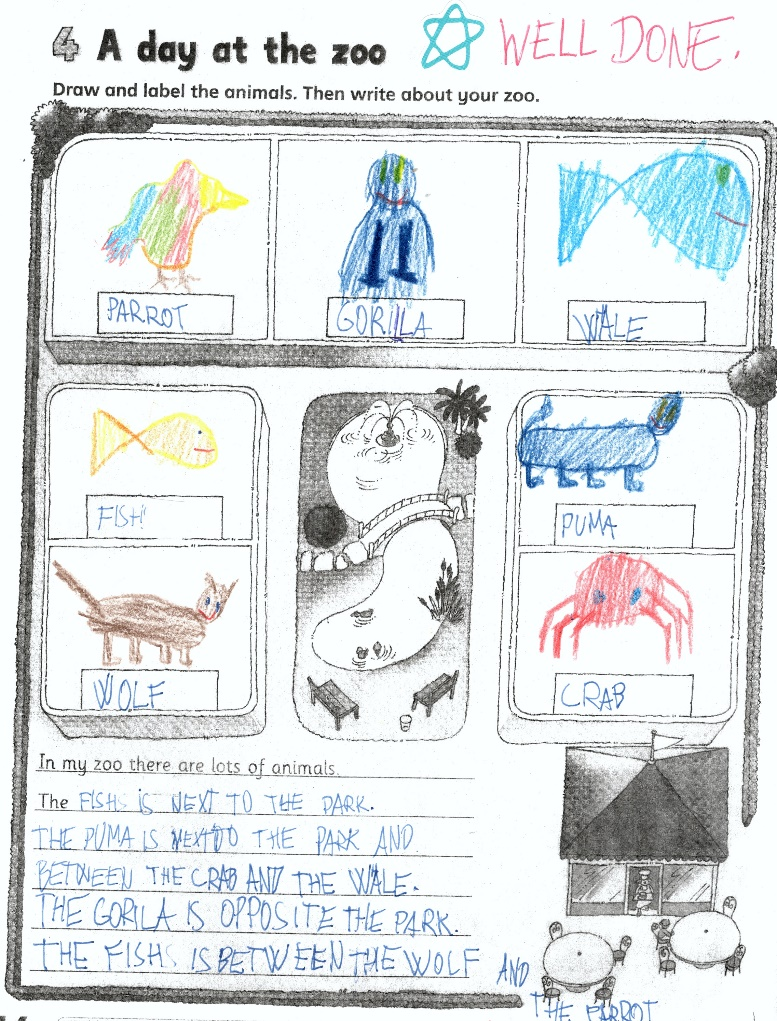 4 A day at the zoo
WELL DONE.
Draw and label the animals. Then write about your zoo.
PARROT
GORILLA
WALE
FISH
PUMA
WOLF
CRAB
In my zoo there are lots of animals.
The FISH IS NEXT TO THE PARK.
THE PUMA IS NEXT TO THE PARK AND
BETWEEN THE CRAB AND THE WALE.
THE GORILA IS OPPOSITE THE PARK.
THE FISH IS BETWEEN THE WOLF AND
THE PARROT